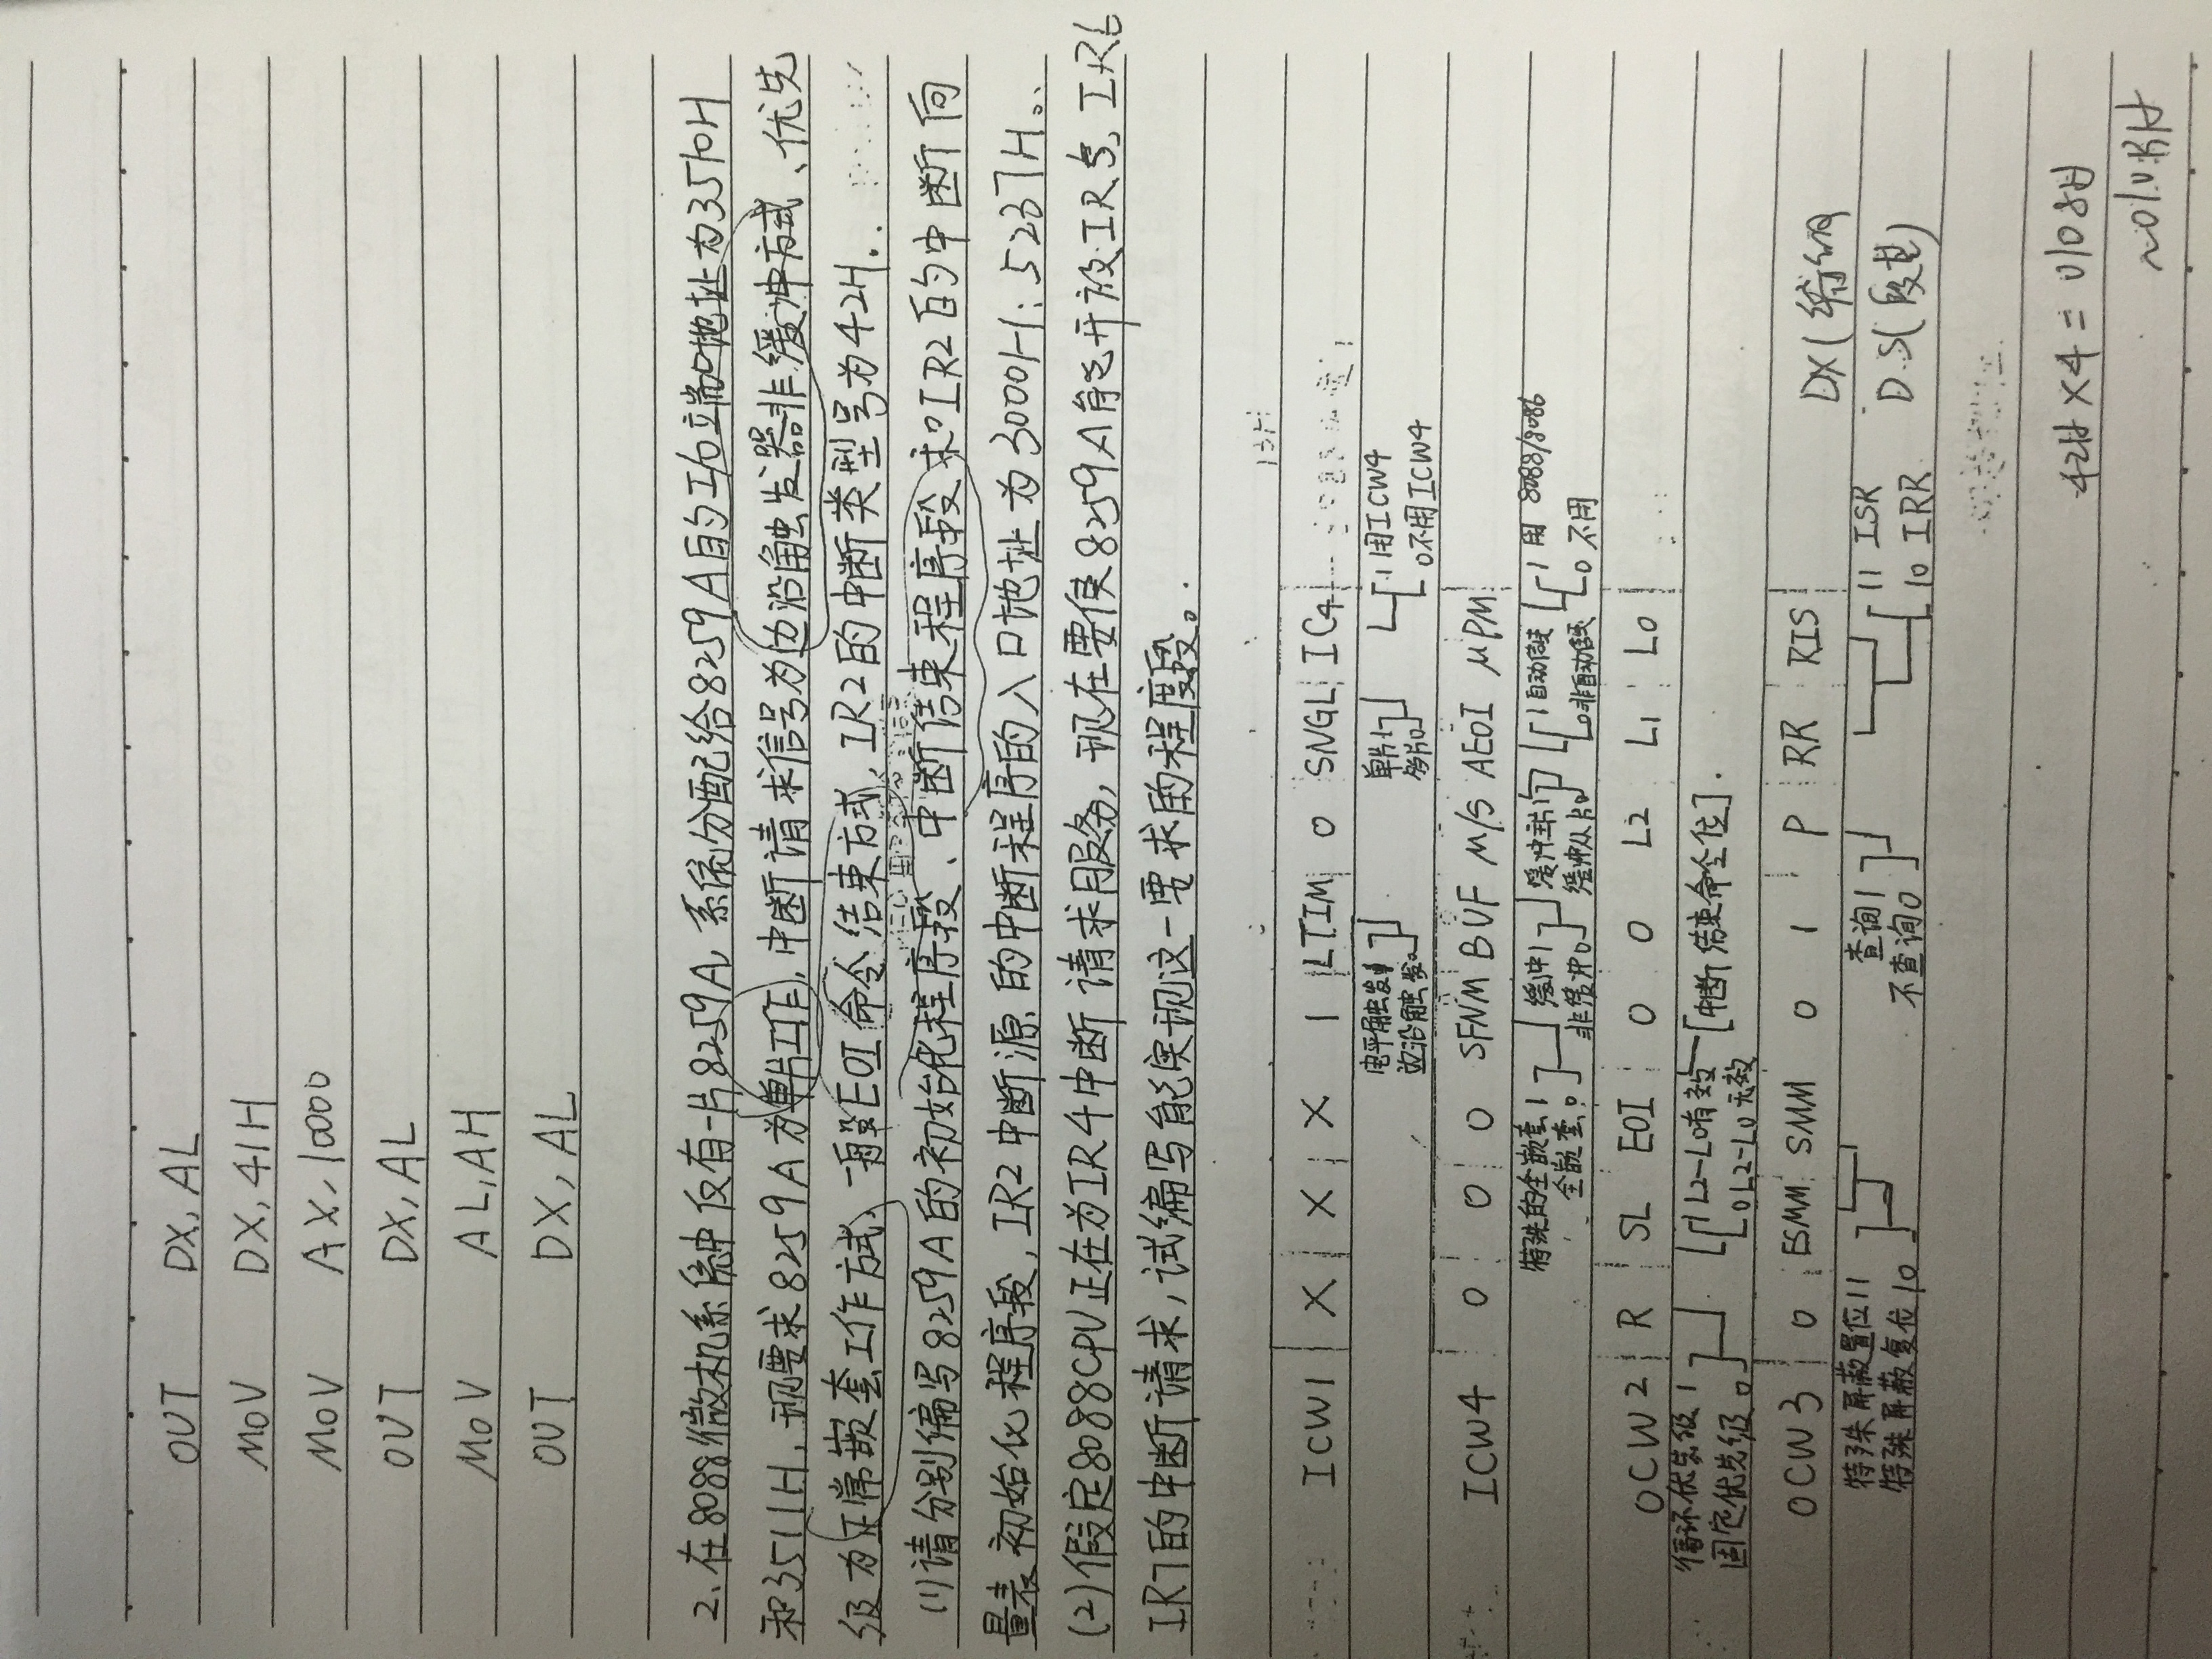 OUT DX, AL
MOV DX, 41H
MOV AX, 10000
OUT DX, AL
MOV AL, AH
OUT DX, AL
2、在8088微机系统中仅有一片8259A, 系统分配给8259A的I/O端口地址为3510H
和3511H, 现要求8259A为单片工作, 中断请求信号为边沿触发器非缓冲方式、优先
级为正常嵌套工作方式、一般EOI命令结束方式, IR2的中断类型号为42H.
(1)请分别编写8259A的初始化程序段、中断结束程序段和IR2的中断向
量表初始化程序段, IR2中断源的中断程序的入口地址为3000H:5237H。
(2)假定8088CPU正在为IR4中断请求服务, 现在要使8259A能开放IR5、IR6
IR7的中断请求, 试编写能实现这一要求的程度段。
13H
ICW1 X X X 1 LTIM 0 SNGL IC4
电平触发1 单片1 1用ICW4
边沿触发0 多片0 0不用ICW4
ICW4 0 0 0 SFNM BUF M/S AEOI μPM
特殊的全嵌套1 缓冲1 缓冲主片1 1自动结束 1 用 8088/8086
全嵌套0 非缓冲0 缓冲从片0 0非自动结束 0 不用
OCW2 R SL EOI 0 0 L2 L1 L0
循环优先级1 1 L2-L0有效 [中断结束命令位].
固定优先级0 0 L2-L0无效
OCW3 0 ESMM SMM 0 1 P RR RIS DX(
特殊屏蔽置位11 查询1 11 ISR
特殊屏蔽复位10 不查询0 10 IRR D.S(段基)
42H×4=0108H
~010BH